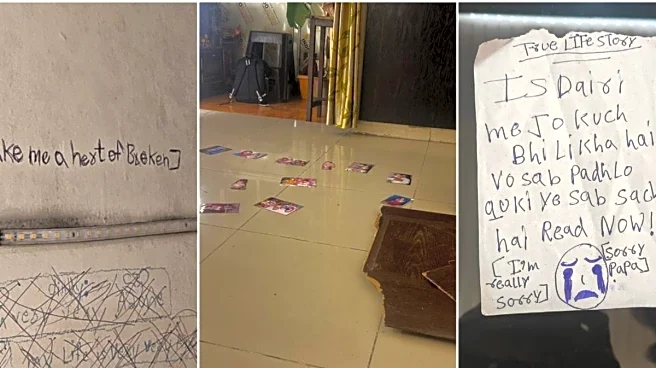 ke me a hert of Broken]
Life is Very Very
TRUE LIFE STORY
Is Dairi
me Jo kuch
Bhi Likha hai
Vo sab Padhlo
quki Ye Sab Sach
hai Read NOW!
[I'm
really
sorry]
[Sorry
Papa]